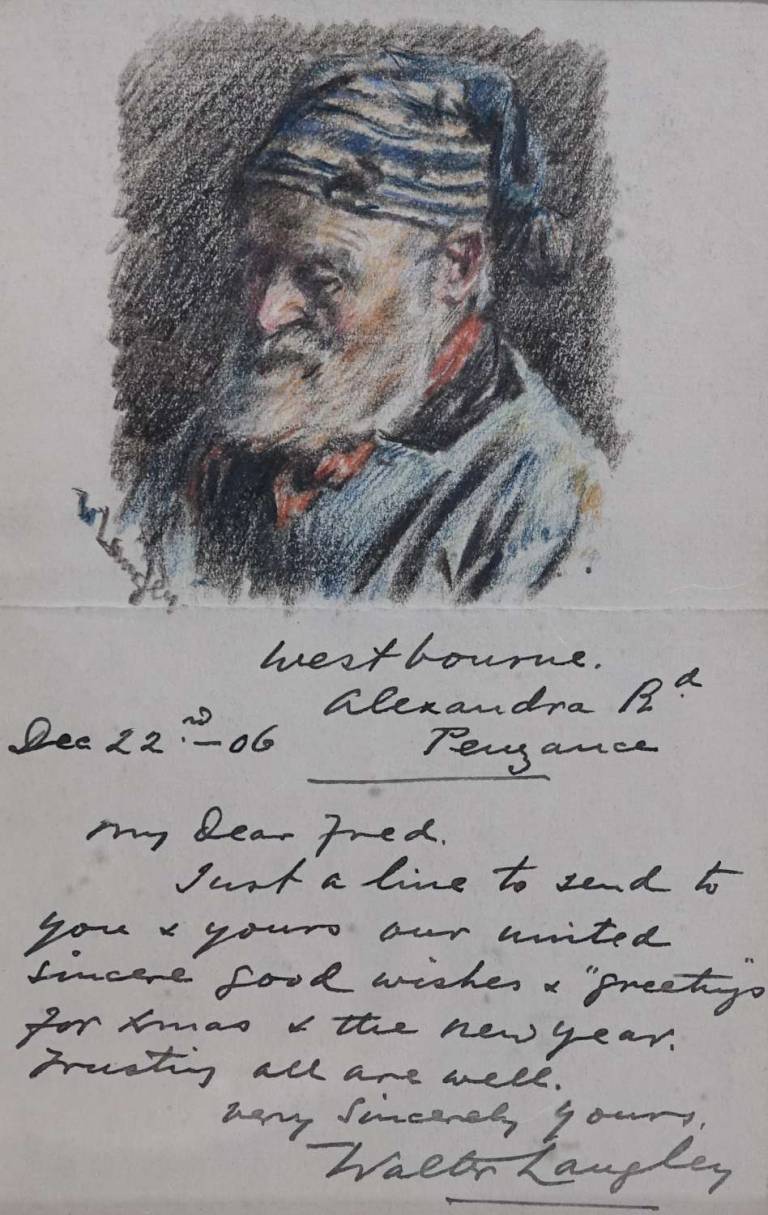 W Langley.
Westbourne.
Alexandra Rd
Dec 22nd - 06
Penzance
My Dear Fred.
Just a line to send to
you & yours our united
sincere good wishes & "greetings"
for Xmas & the new year.
Trusting all are well.
Very Sincerely Yours,
Walter Langley